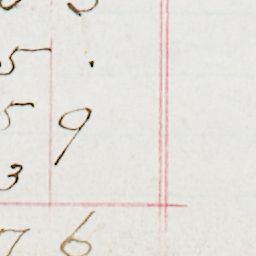 5 .
5 9
3
7 6